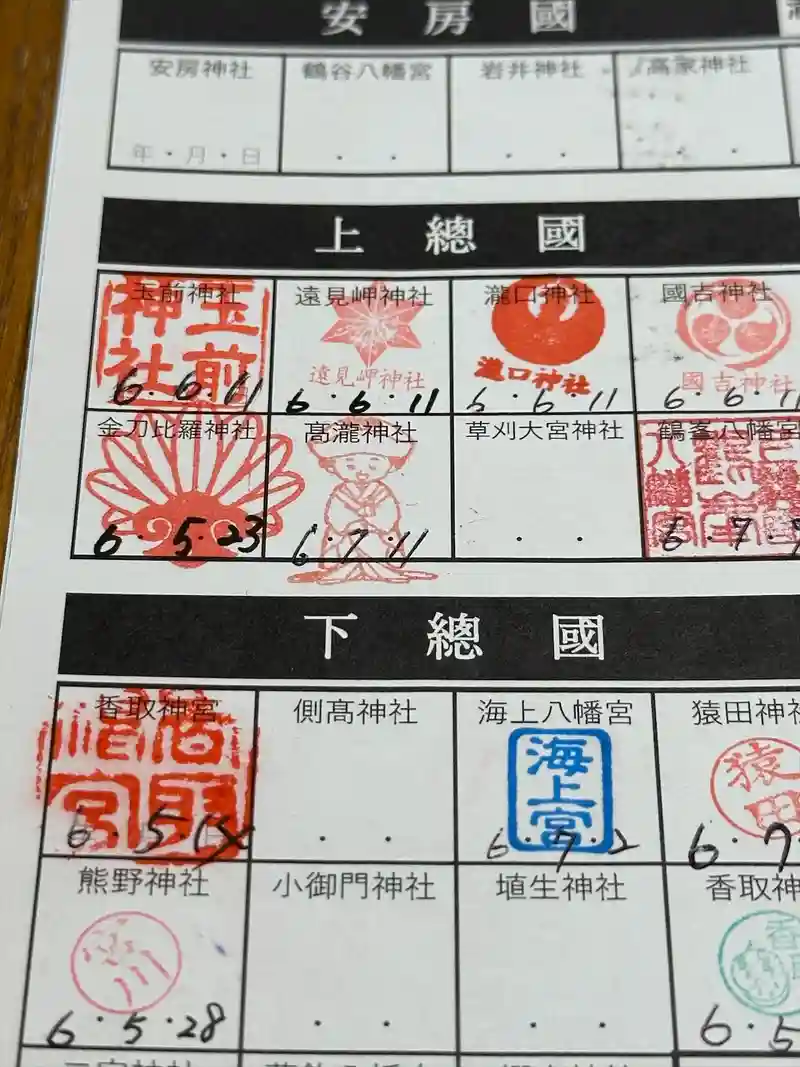 安房國
安房神社 鶴谷八幡宮 岩井神社 高家神社
年・月・日 ・ ・ ・ ・ ・ ・
上總國
玉前神社 遠見岬神社 瀧口神社 國吉神社
玉前神社 遠見岬神社 瀧口神社 國吉神社
6・6・11 6・6・11 6・6・11 6・6・11
金刀比羅神社 高瀧神社 草刈大宮神社 鶴峯八幡宮
6・5・23 6・7・11 ・ ・ 6・7・
下總國
香取神宮 側高神社 海上八幡宮 猿田神社
海上宮 猿田
6・5・14 ・ ・ 6・7・2 6・7・
熊野神社 小御門神社 埴生神社 香取神
6・5・28 ・ ・ ・ ・ 6・5